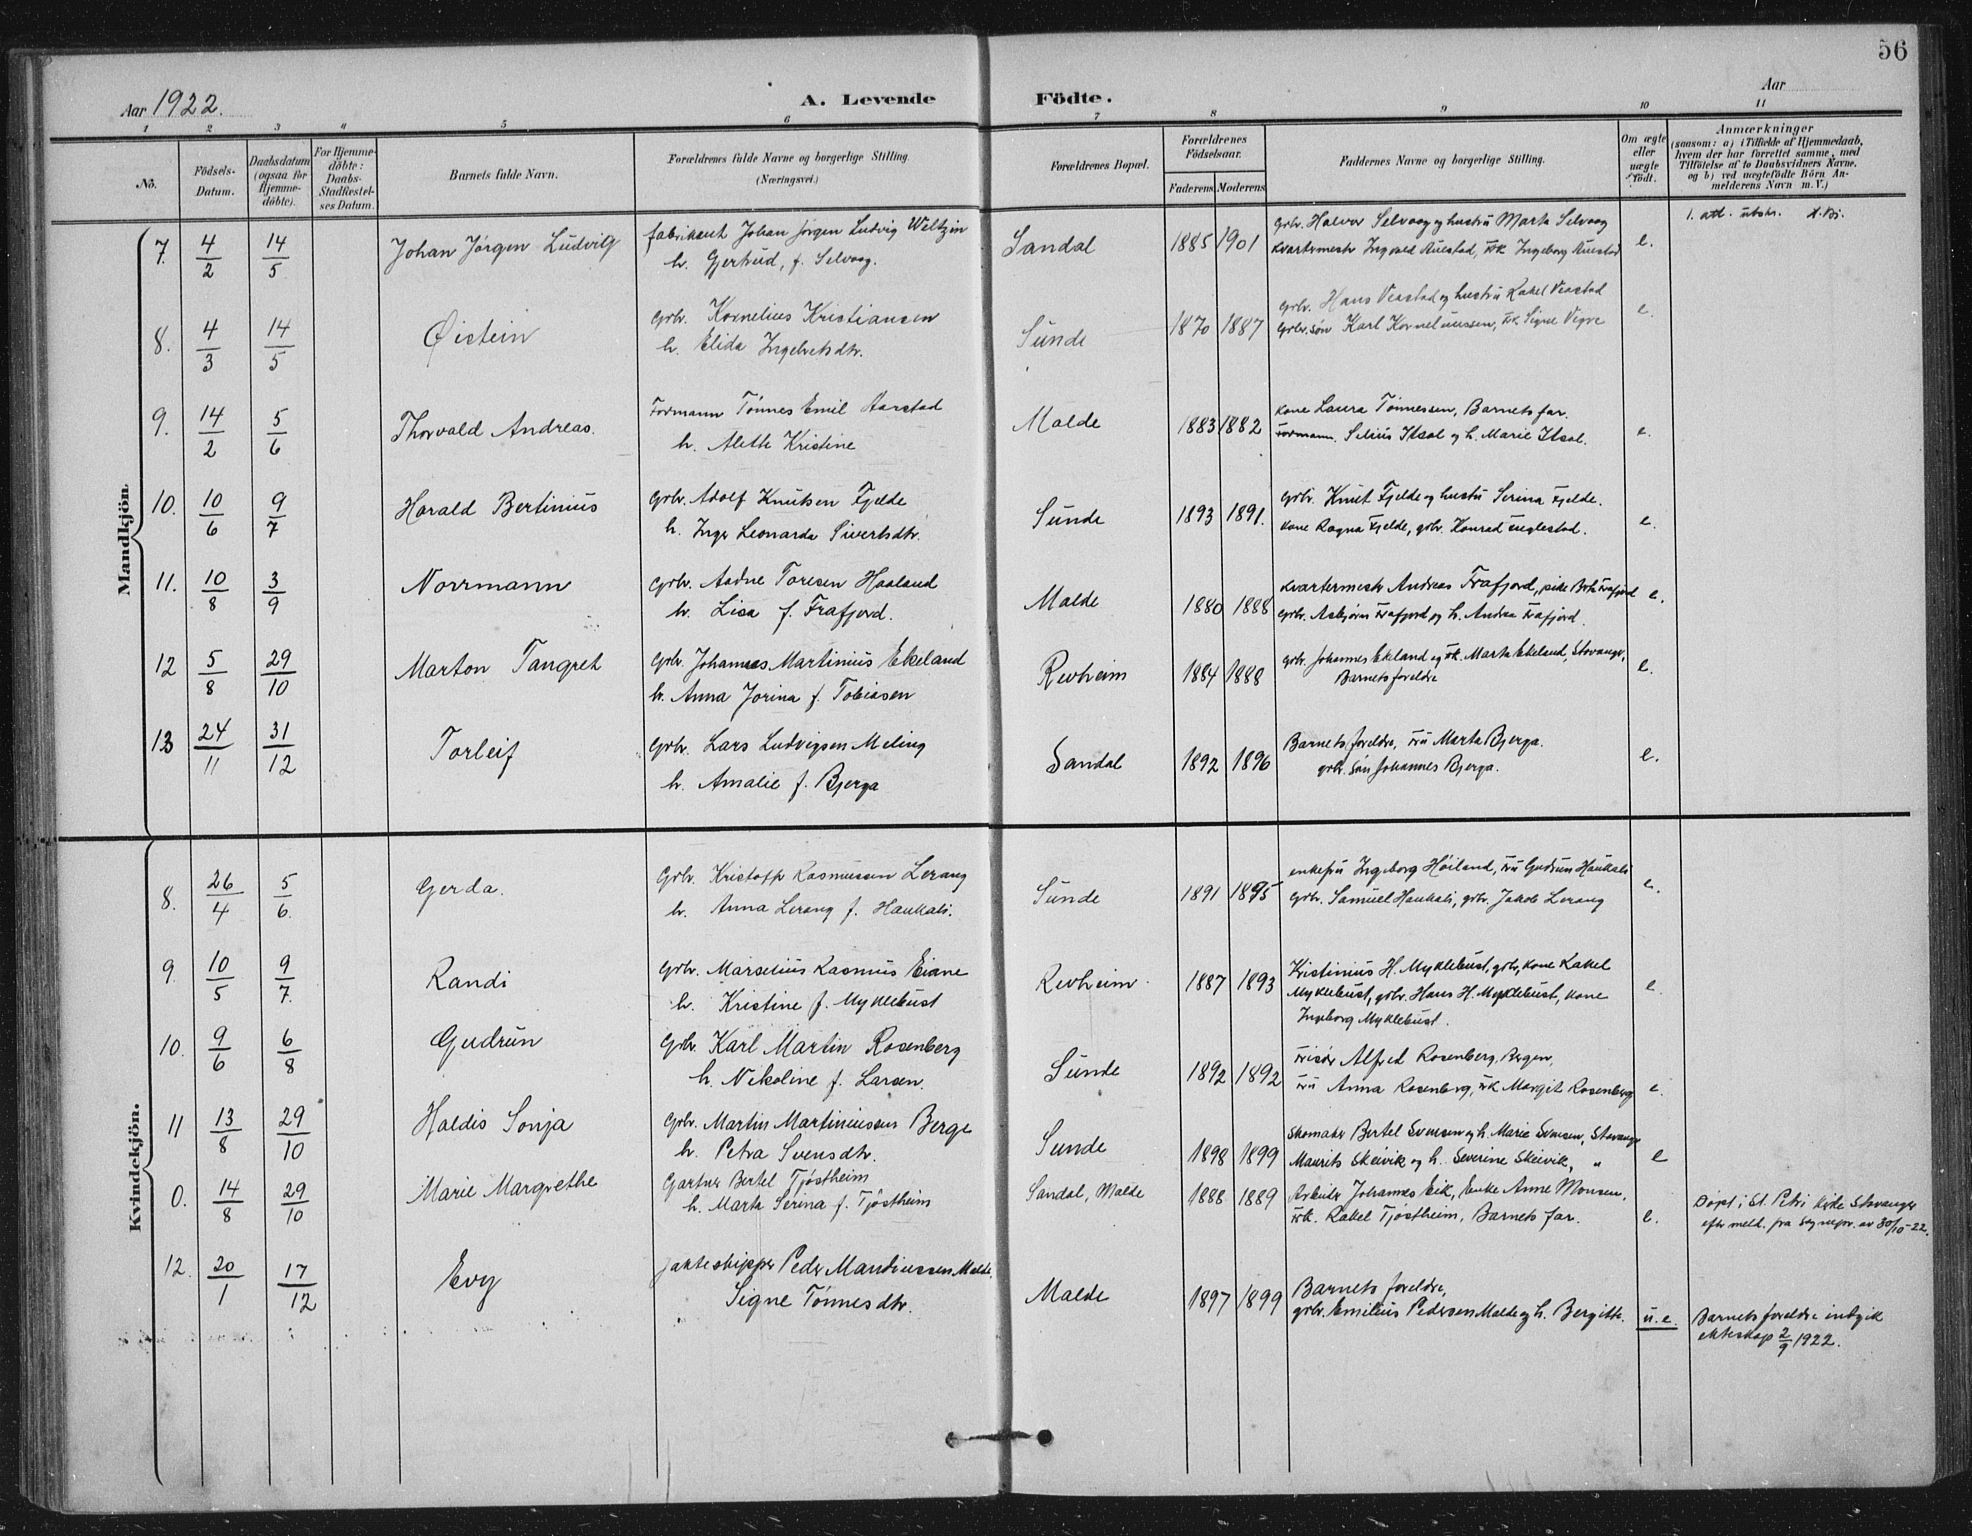 56
Aar 1922.
A. Levende Födte.
Aar
1 2 3 4 5 6 7 8 9 10 11
No.
Födsels-Datum.
Daabsdatum (ogsaa for Hjemme-döbte).
For Hjemme-döbte: Daabs-Stadfæstel-ses Datum.
Barnets fulde Navn.
Forældrenes fulde Navne og borgerlige Stilling.
(Næringsvei.)
Forældrenes Bopæl.
Forældrenes Födselsaar.
Faderens Moderens
Faddernes Navne og borgerlige Stilling.
Om ægte eller uægte födt.
Anmærkninger
(saasom: a) i Tilfælde af Hjemmedaab, hvem der har forrettet samme, med Tilföielse af to Daabsvidners Navne, og b) ved uægtefödte Börn Anmelderens Navn m. V.)
Mandkjön.
7. 4/2 14/5 Johan Jörgen Ludvig
fabrikant Johan Jörgen Ludvig Weltzin
h. Gertrud, f. Selvaag.
Sandal 1885 1901
Grbr. Halvor Selvaag og hustru Marta Selvaag
Kvartermestr Ingvald Auestad, frk Ingeborg Auestad
e.
1. att. utskr.
8. 4/3 14/5 Øistein
Grbr. Kornelius Kristiansen
h. Elida Ingebretsdtr.
Sunde 1870 1887
Grbr. Hans Veastad og hustru Rakel Veastad
Grbr.søn Karl Korneliussen, frk Signe Vigre
e.
9. 14/2 5/6 Thorvald Andreas.
Formann Tönnes Emil Aarstad
h. Aleth Kristine
Malde 1883 1882
Kone Laura Tönnessen, Barnets far.
Formann. Selius Itsal og h. Marie Itsal.
e.
10. 10/6 9/7 Harald Bertinius
Grbr. Adolf Knutsen Fjelde
h. Inger Leonarda Sivertsdtr.
Sunde 1893 1891.
Grbr. Knut Fjelde og hustru Serina Fjelde.
Kone Ragna Fjelde, grbr. Konrad Englestad.
e.
11. 10/8 3/9 Norrmann
Grbr. Aadne Toresen Haaland
h. Lisa f. Frafjord.
Malde 1880 1888
Kvartermestr Andreas Frafjord, pike Berta Frafjord
Grbr. Asbjörn Frafjord og h. Andrea Frafjord.
e.
12 5/8 29/10 Marton Tangret
Grbr. Johannes Martinius Ekeland
h. Anna Jorina f. Tobiasen
Revheim 1884 1888
Grbr. Johannes Ekeland og frk. Marta Ekeland, Stavanger,
Barnets foreldre
e.
13 24/11 31/12 Torleif
Grbr. Lars Ludvigsen Meling
h. Amalie f. Bjerga
Sandal 1892 1896
Barnets foreldre, fru Marta Bjerga.
grbr. søn Johannes Bjerga.
e.
Kvindekjön.
8. 26/4 5/6. Gerda.
Grbr. Kristoffer Rasmussen Lerang
h. Anna Lerang f. Haukali.
Sunde 1891 1895
enkefru Ingeborg Höiland, fru Gudrun Haukali
Grbr. Samuel Haukali, grbr. Jakob Lerang
e.
9 10/5 9/7. Randi
Grbr. Marselius Rasmus Eiane
h. Kristine f. Myklebust
Revheim 1887 1893
Kristinius H. Myklebust, grbr, kone Rakel
Myklebust, grbr. Hans H. Myklebust, kone
Ingeborg Myklebust.
e.
10. 9/6 6/8 Gudrun
Grbr. Karl Martin Rosenberg
h. Nikoline f. Larsen.
Sunde 1892 1892
Frisör Alfred Rosenberg, Bergen,
Fru Anna Rosenberg, frk Margit Rosenberg
e.
11 13/8 29/10 Haldis Sonja
Grbr. Martin Martiniussen Berge
h. Petra Svensdtr.
Sunde 1898 1899
Skomaker Bertel Svensen og h. Marie Svensen, Stavanger
Maurits Skeivik og h. Severine Skeivik, "
e
0. 14/8 29/10 Marie Margrethe
Gartner Bertel Tjøstheim
h. Marta Serina f. Tjöstheim
Sandal, Malde 1888 1889
Arbeider Johannes Eik, Enke Anne Monsen,
frk. Rakel Tjøstheim, Barnets far.
e.
Döpt i St. Petri kirke Stavanger
efter meld. fra sognepr. av 30/10-22.
12. 20/1 17/12 Evy
Jakteskipper Peder Mandiussen Malde,
Signe Tönnesdtr.
Malde 1897 1899
Barnets foreldre,
grbr. Emilius Pedersen Malde og h. Bergitte.
u.e.
Barnets foreldre indgik
ekteskap 2/9 1922.